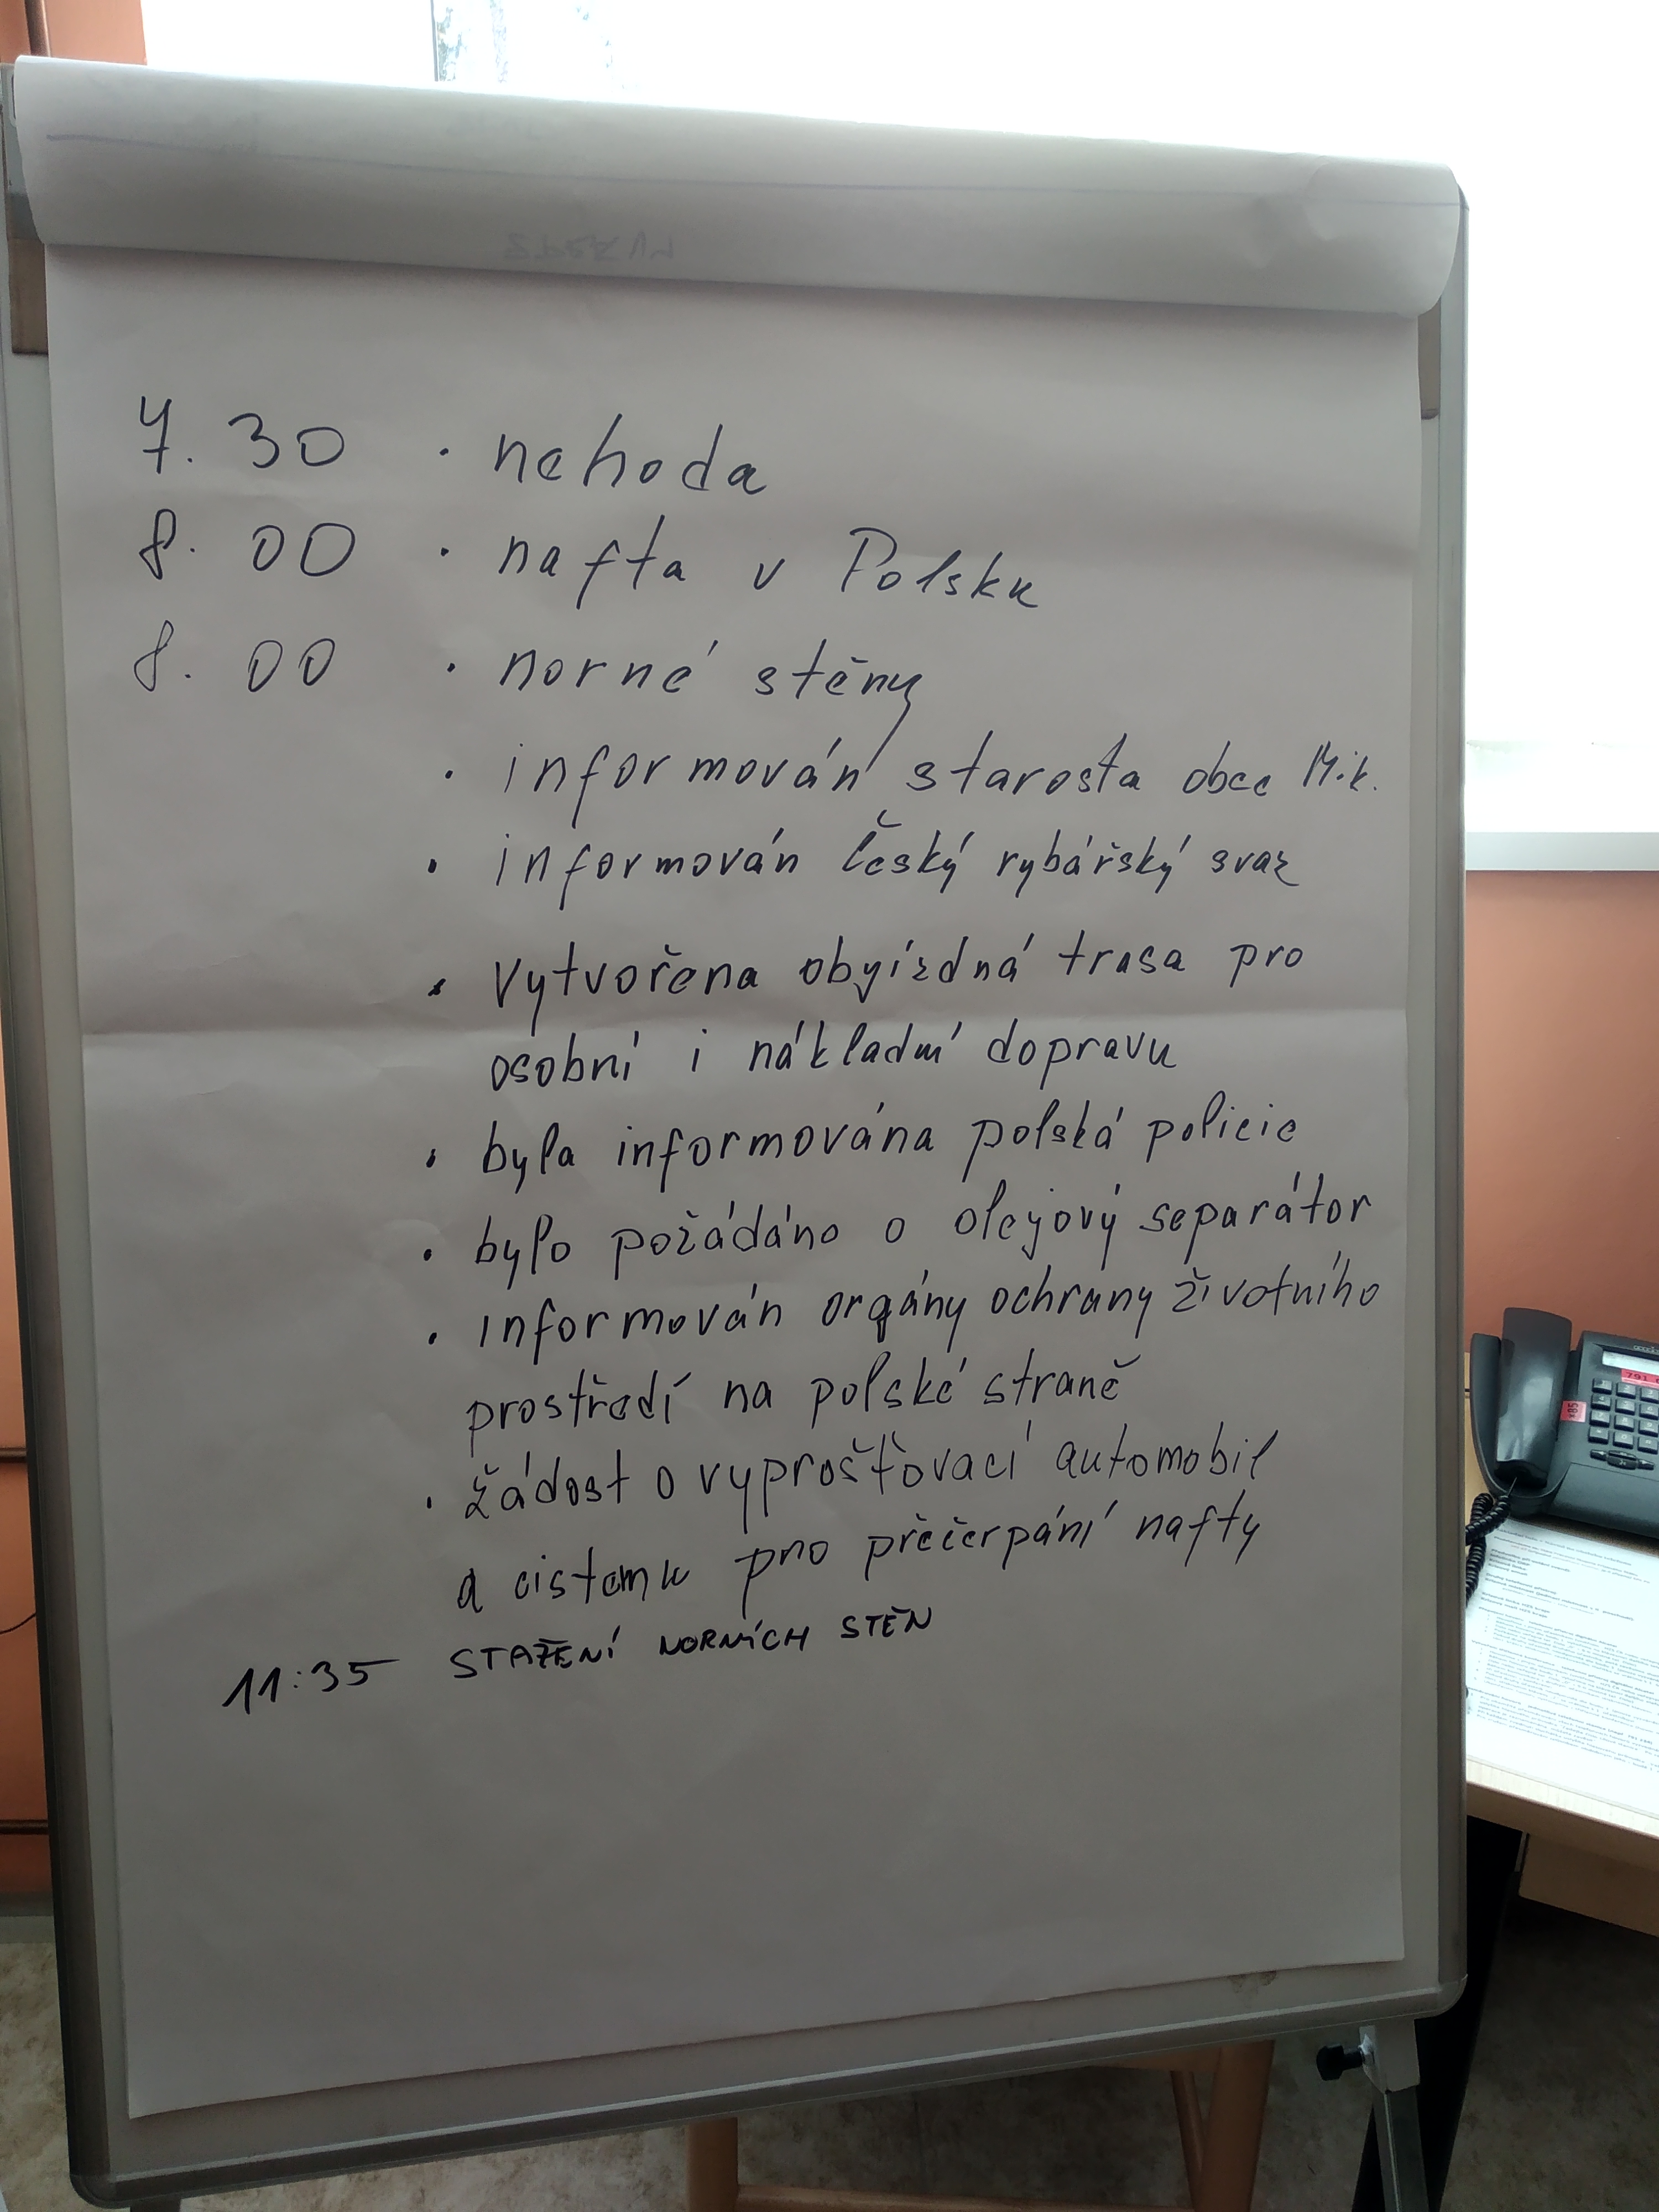 7.30 · nehoda
8.00 · nafta v Polsku
8.00 · norné stěny
· informován starosta obce Mik.
· informován Český rybářský svaz
· vytvořena obyízdná trasa pro
osobní i nákladní dopravu
· byla informována polská policie
· bylo požádáno o olejový separátor
· informován orgány ochrany životního
prostředí na polské straně
· žádost o vyprošťovací automobil
a cisternu pro přečerpání nafty
11:35 STAŽENÍ NORNÍCH STĚN
791